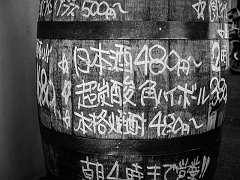 500円〜
☆日本酒480円〜
☆超炭酸角ハイボール
380
☆本格焼酎480円〜
朝4時まで営業!!